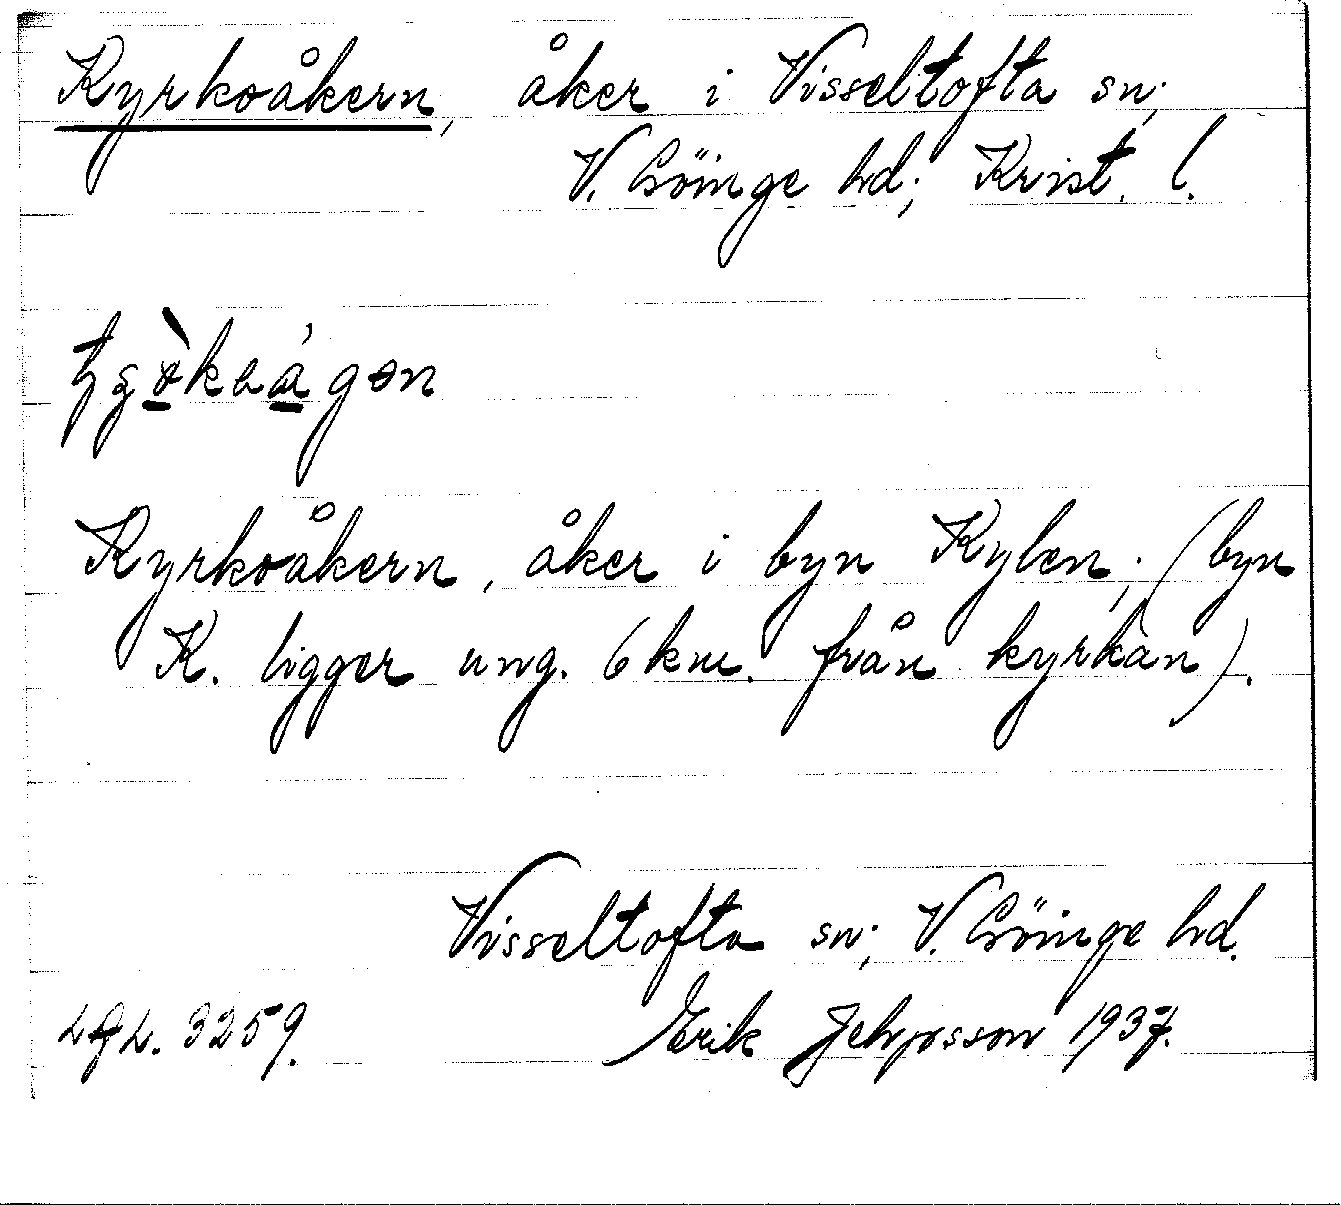 Kyrkoåkern, åker i Visseltofta sn;
V. Göinge hd; Krist. l.
Kyrkoåkern, åker i byn Kylen; (byn
K. ligger ung. 6 km. från kyrkan).
Visseltofta sn; V. Göinge hd.
3259. Erik 1937.